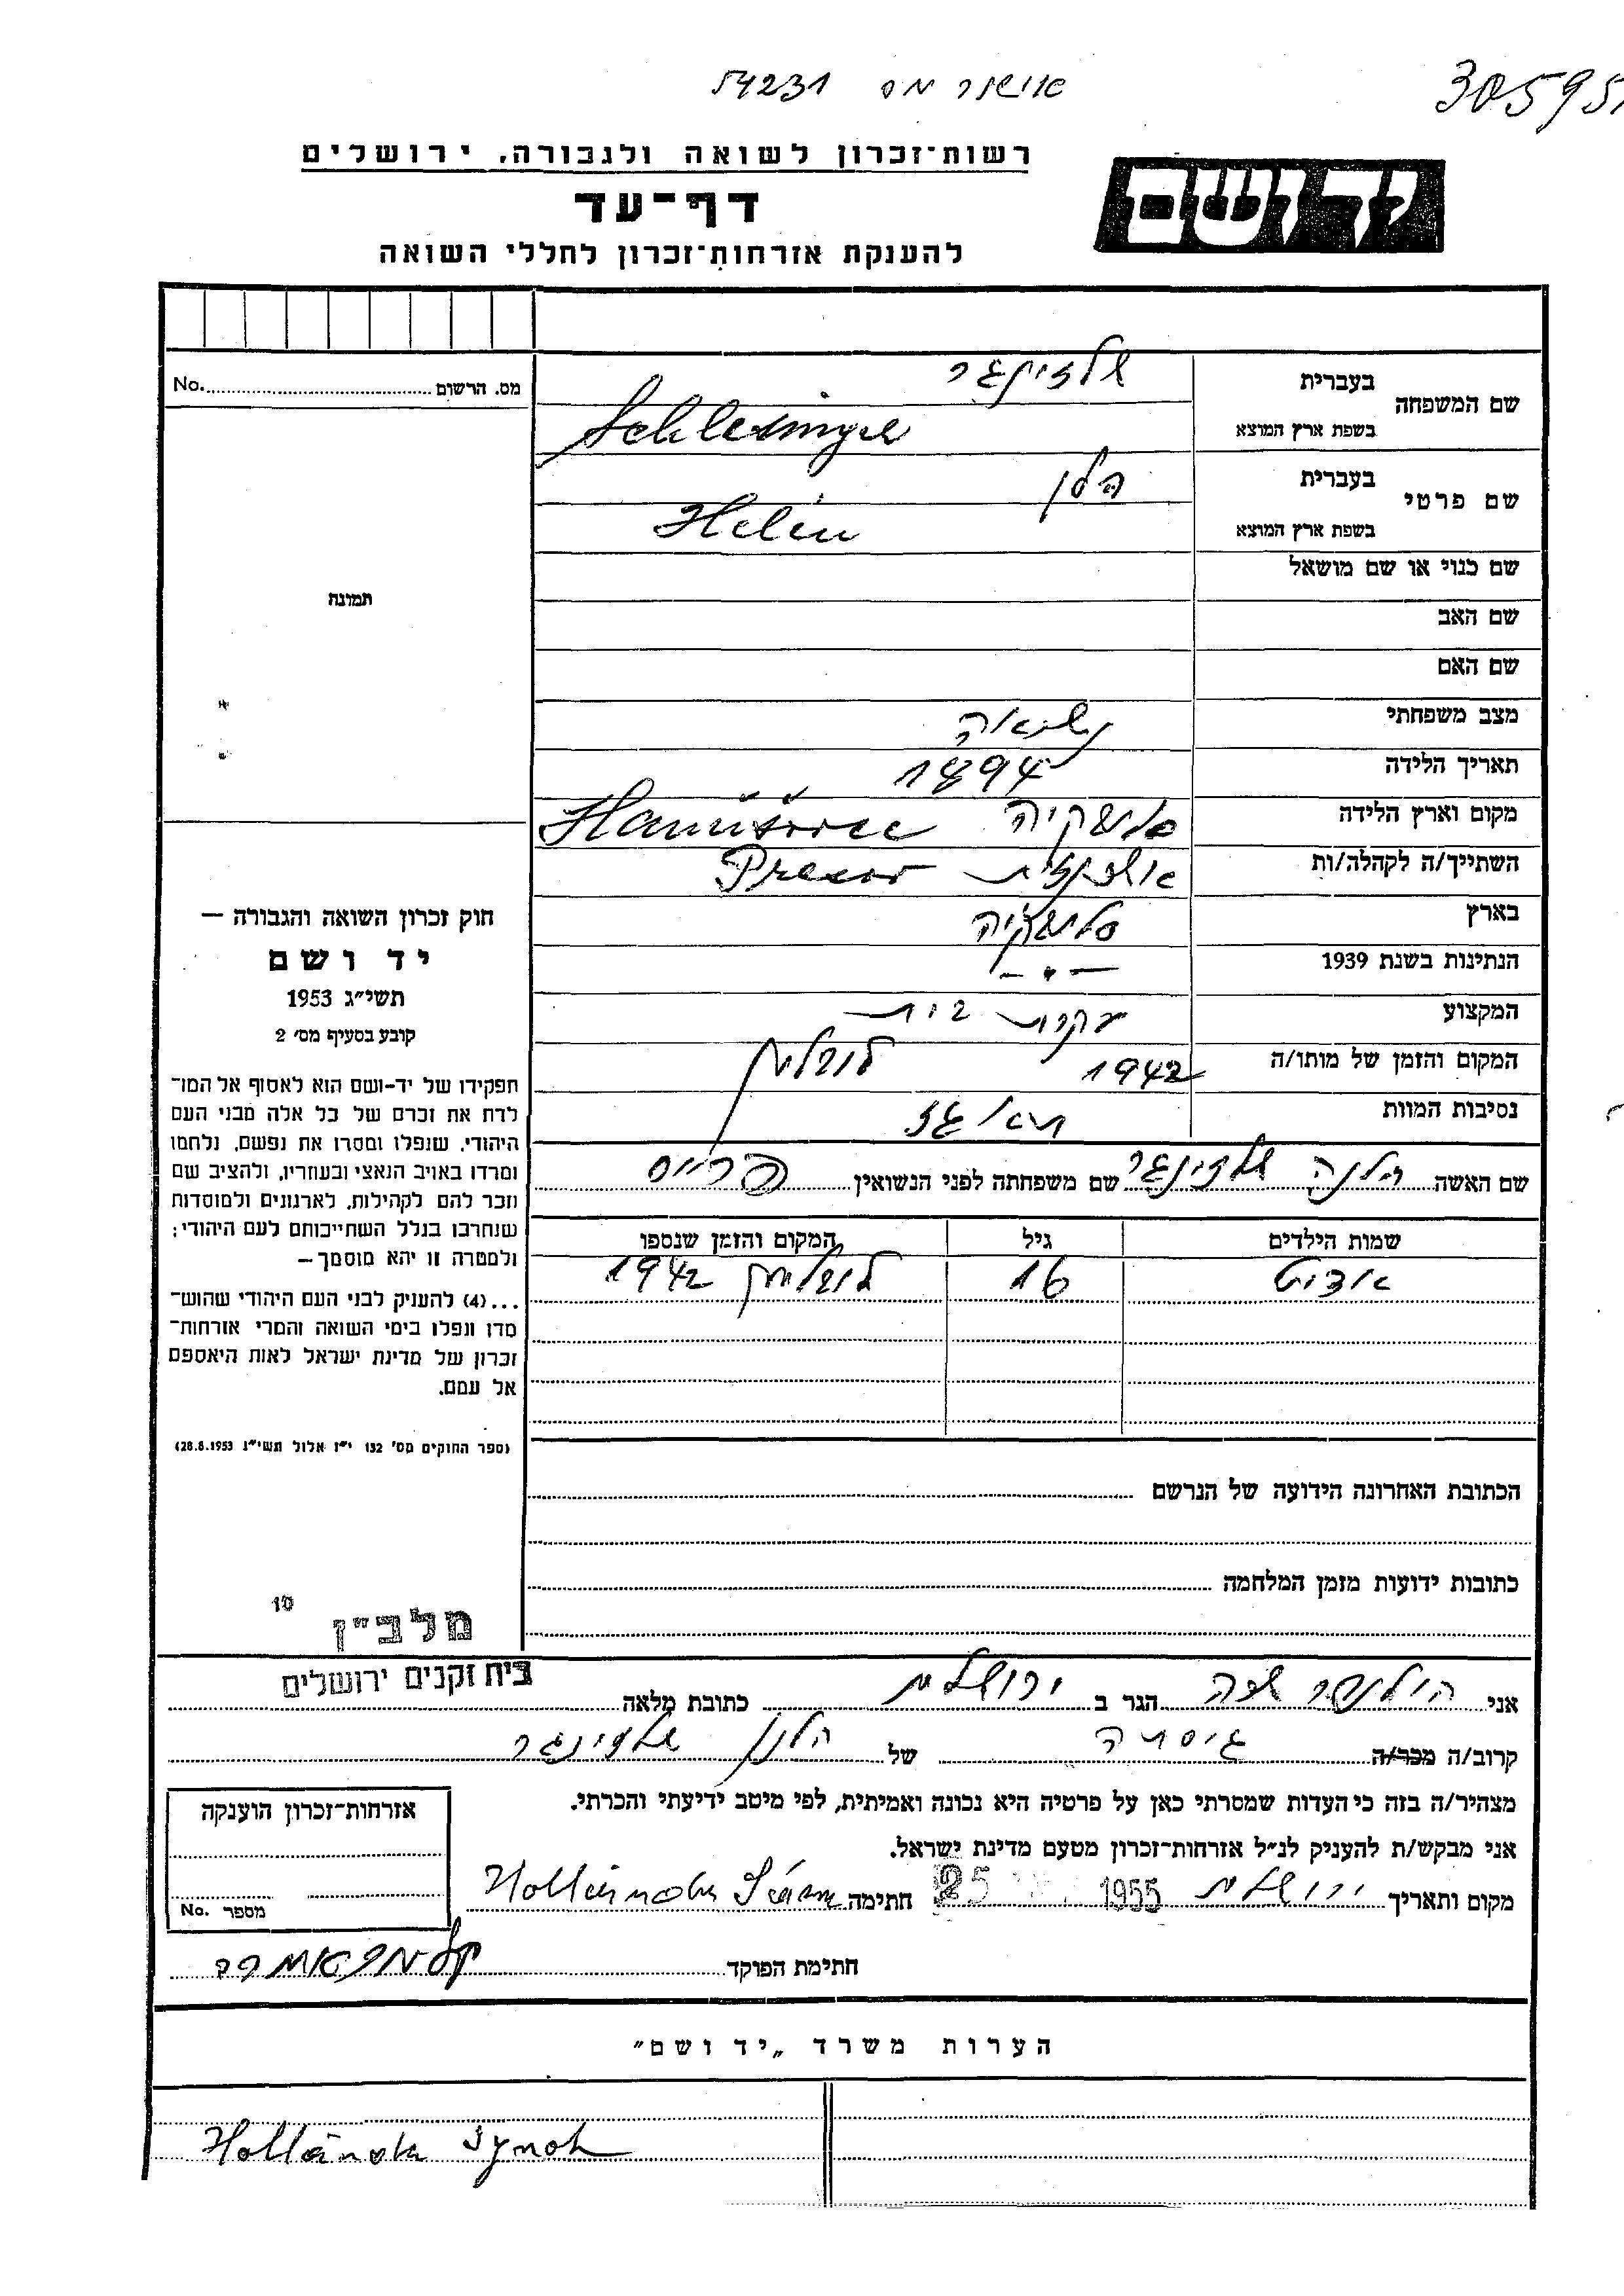 אושר מס 54231
305951
רשות־זכרון לשואה ולגבורה, ירושלים
יד ושם
דף־עד
להענקת אזרחות־זכרון לחללי השואה
מס. הרשום No.
תמונה
שם המשפחה בעברית שלזינגר
בשפת ארץ המוצא Schlesinger
שם פרטי בעברית הלן
בשפת ארץ המוצא Helén
שם כנוי או שם מושאל
שם האב
שם האם
מצב משפחתי נשואה
תאריך הלידה 1894
מקום וארץ הלידה סלובקיה Hanušovce
השתייך/ה לקהלה/ות Presov
בארץ סלובקיה
הנתינות בשנת 1939 — " —
המקצוע עקרת בית
המקום והזמן של מותו/ה 1942 לובלין
נסיבות המוות
שם האשה הלנה שלזינגר שם משפחתה לפני הנשואין
שמות הילדים גיל המקום והזמן שנספו
אדיט 16 לובלין 1942
הכתובת האחרונה הידועה של הנרשם
כתובות ידועות מזמן המלחמה
חוק זכרון השואה והגבורה —
יד ושם
תשי״ג 1953
קובע בסעיף מס׳ 2
תפקידו של יד-ושם הוא לאסוף אל המו־
לדת את זכרם של כל אלה מבני העם
היהודי, שנפלו ומסרו את נפשם, נלחמו
ומרדו באויב הנאצי ובעוזריו, ולהציב שם
וזכר להם לקהילות, לארגונים ולמוסדות
שנחרבו בגלל השתייכותם לעם היהודי;
ולמטרה זו יהא מוסמך—
...(4) להענ‌יק לבני העם היהודי שהוש־
מדו ונפלו בימי השואה והמרי אזרחות־
זכרון של מדינת ישראל לאות היאספם
אל עמם.
(ספר החוקים מס׳ 132 י״ז אלול תשי״ג 28.8.1953)
10
מלב״ן
בית זקנים ירושלים
אני הגר ב ירושלים כתובת מלאה
קרוב/ה מכר/ה גיסתה של הלן שלזינגר
מצהיר/ה בזה כי העדות שמסרתי כאן על פרטיה היא נכונה ואמיתית, לפי מיטב ידיעתי והכרתי.
אני מבקש/ת להעניק לנ״ל אזרחות־זכרון מטעם מדינת ישראל.
מקום ותאריך ירושלים 25 1955 חתימה
חתימת הפוקד
אזרחות־זכרון הוענקה
מספר No.
הערות משרד „יד ושם״